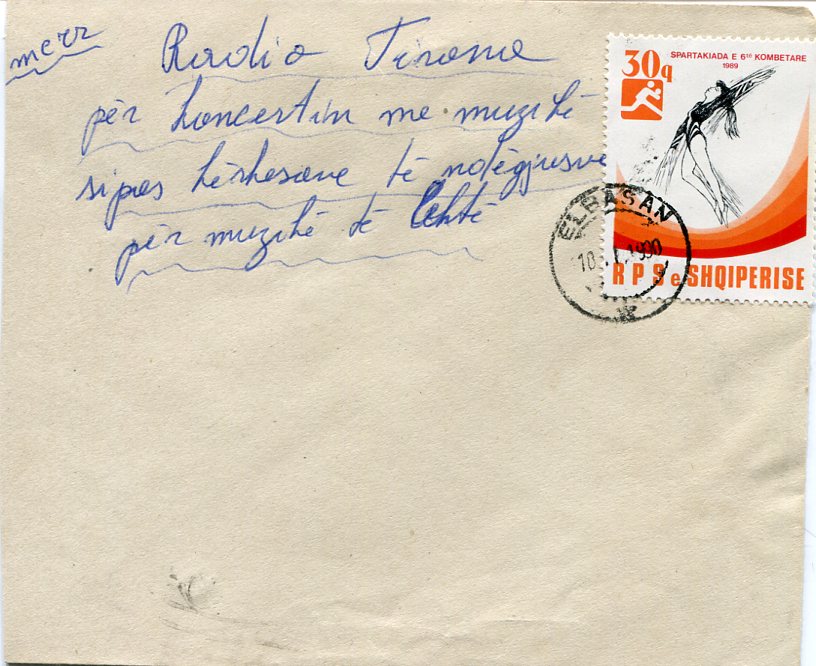 merr Radio Tirana
për koncertin me muzikë
sipas kërkesave të ndëgjusve
për muzikë të lehtë
30q
SPARTAKIADA E 6TË KOMBETARE
1989
ELBASAN
1990
R P S e SHQIPERISE